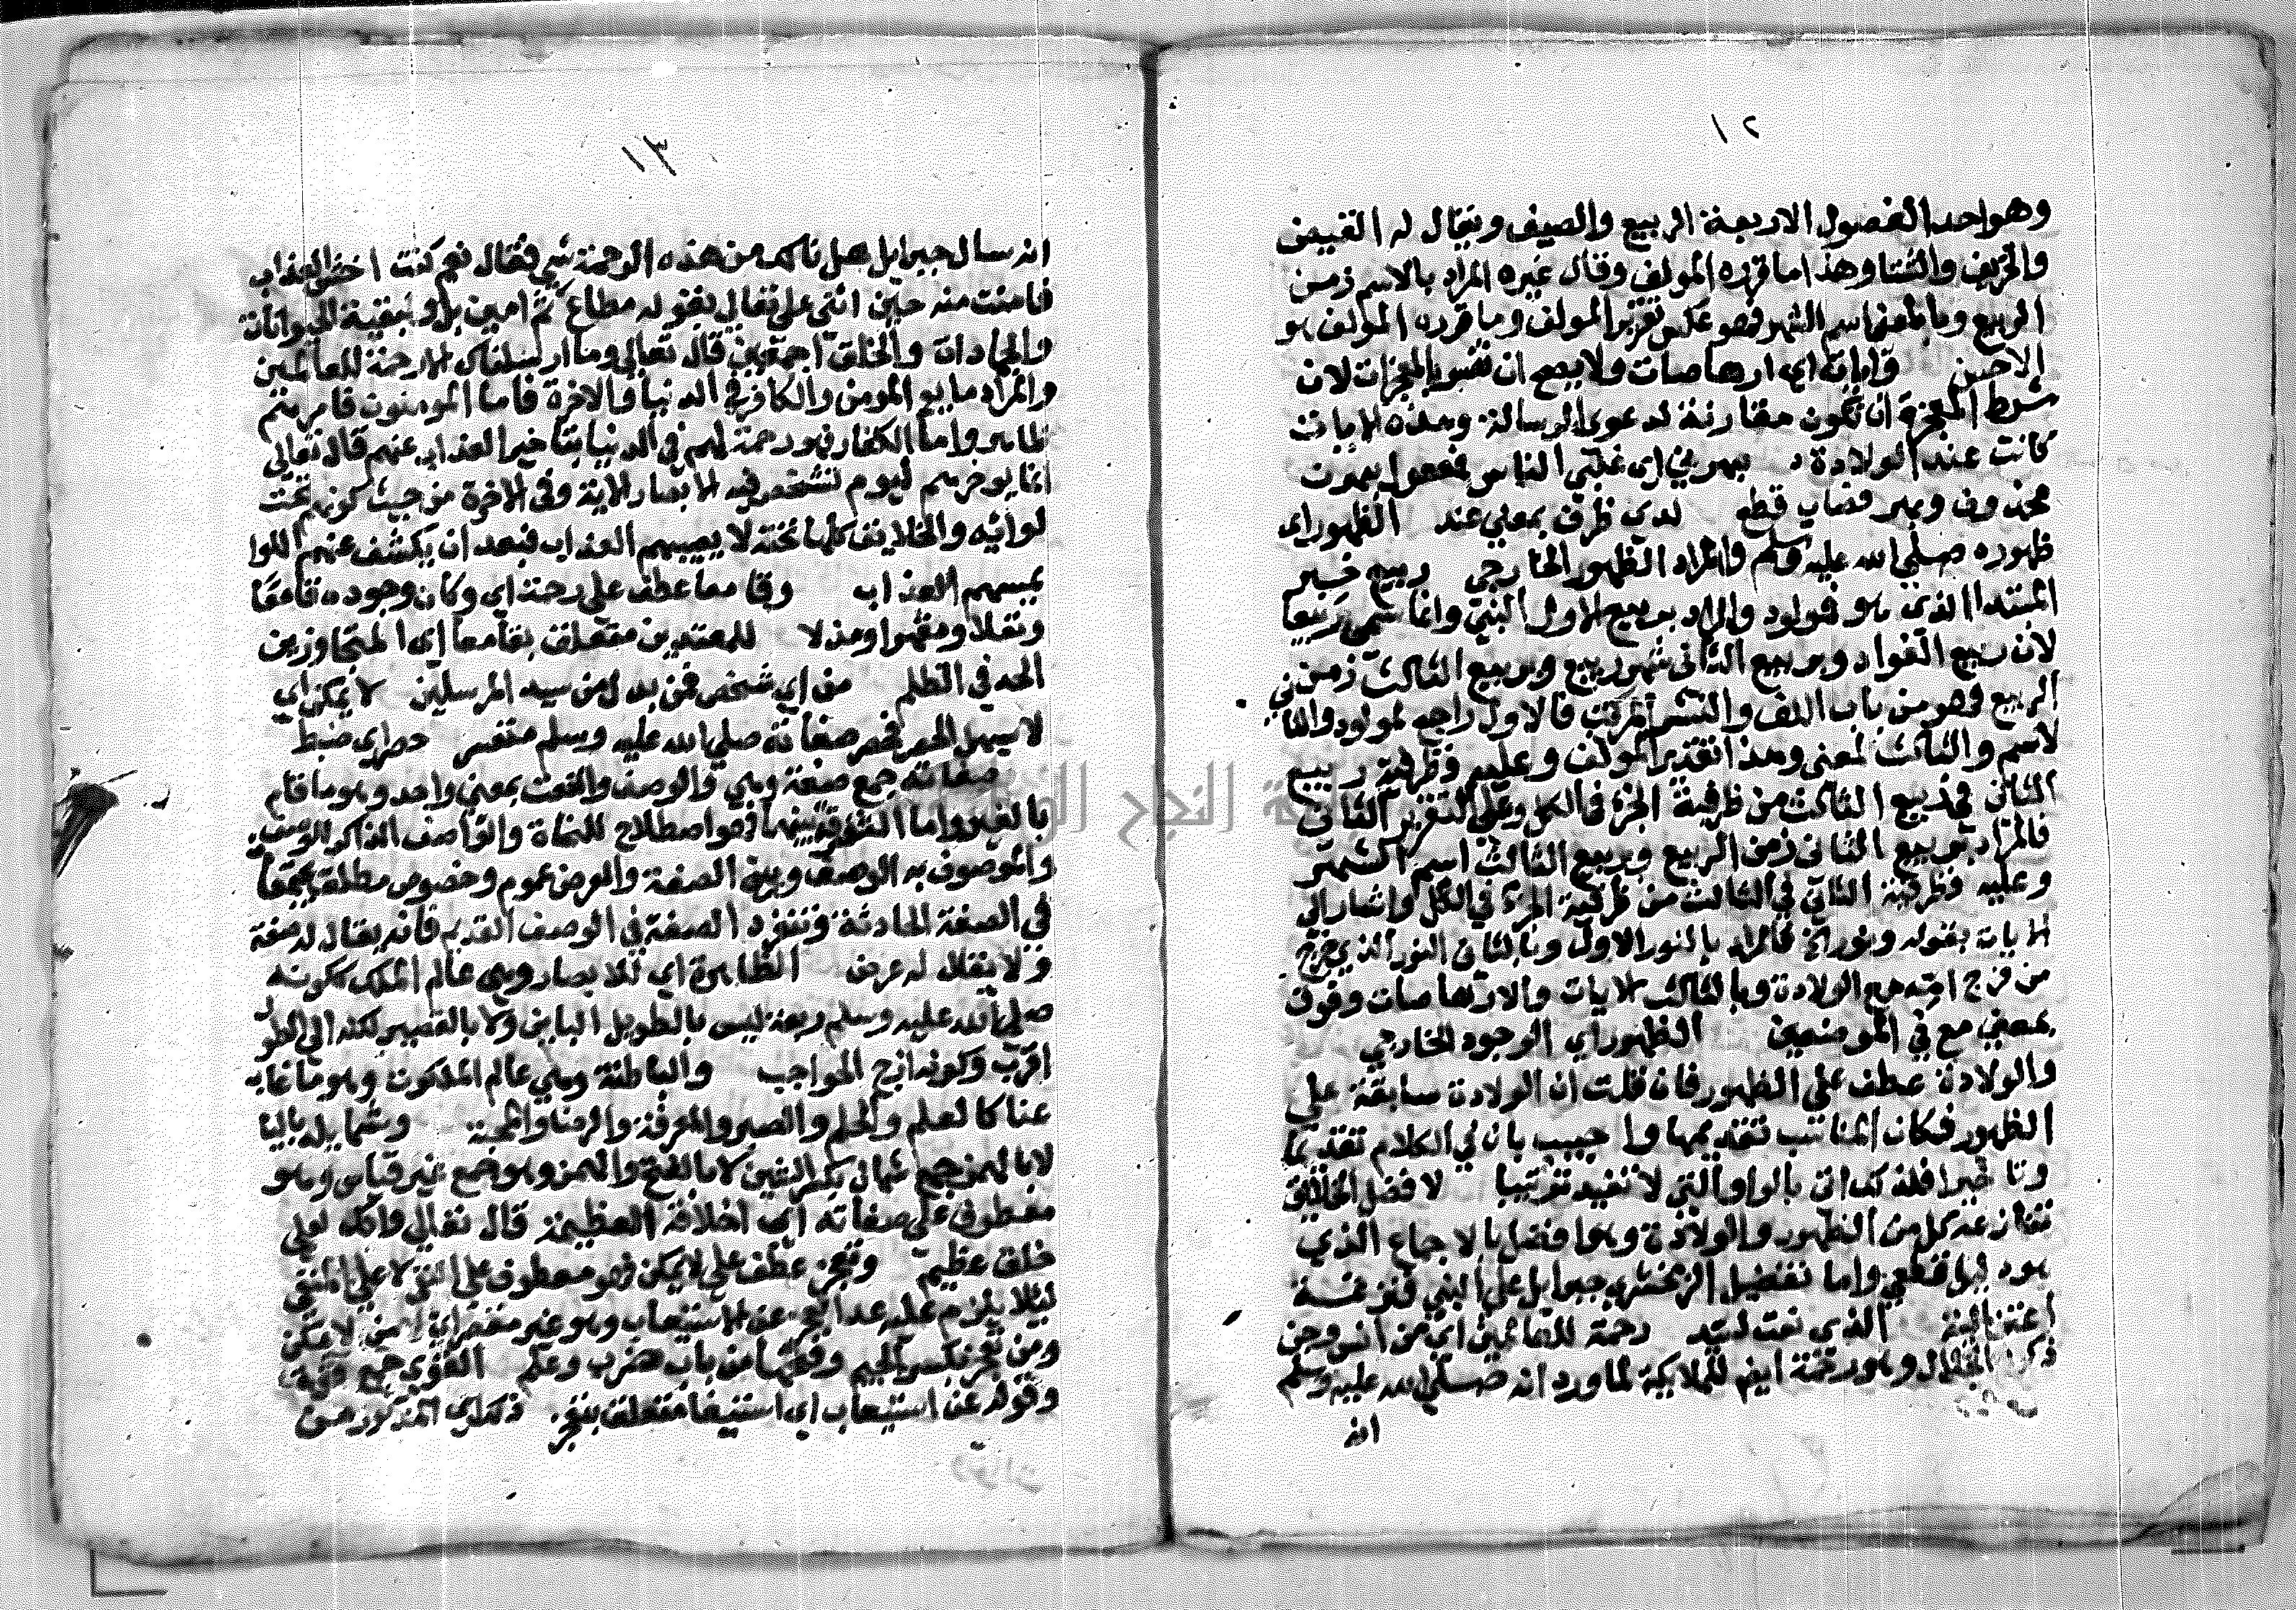 ١٢
وهو احد الفصول الاربعة الربيع والصيف ويقال له القيض
والخريف والشتا وهذا ما قرره المولف وقال غيره المراد بالاسم زمن
الربيع وبالمعنى اسم الشهر فهو عكس تقرير المولف وما قرره المولف هو
الاحسن وايات اي ارهاصات ولا يصح ان تفسر بالمعجزات لان
شرط المعجزة ان تكون مقارنة لدعوى الرسالة وهذه الايات
كانت عند الولادة بهرن اي غلبن الناس فمفعول بهرت
محذوف وبهر فصاب قطع لدى ظرف بمعنى عند الظهور اي
ظهوره صلى الله عليه وسلم والمراد الظهور الخارجي ربيع خبر
المبتدا الذي هو مولود والمراد بربيع الاول النبي وانما سمى ربيعا
لان ربيع الفواد وبربيع الثاني شهر ربيع وبربيع الثالث زمن
الربيع فهو من باب اللف والنشر المرتب فالاول راجع لمولود والثاني
لاسم والثالث لمعنى وهذا تقدير المولف وعليه فظرفية ربيع
الثاني في ربيع الثالث من ظرفية الجزء في الكل وعلى التقرير الثاني
فالمراد بربيع الثاني زمن الربيع وبربيع الثالث اسم الشهر
وعليه فظرفية الثاني في الثالث من ظرفية الجزء في الكل واشار الى
الايات بقوله ونور الخ فالمراد بالنور الاول وبالثاني النور الذي خرج
من فرج امه مع الولادة وبالثالث الايات والارهاصات وفوق
بمعنى مع في الموضعين الظهور اي الوجود الخارجي
والولادة عطف على الظهور فان قلت ان الولادة سابقة على
الظهور فكان المناسب تقديمها واجيب بان في الكلام تقديما
وتاخيرا فلذلك اتى بالواو التي لا تفيد ترتيبا لا فضل الخلائق
تنازعه كل من الظهور والولادة وهو افضل بالاجماع الذي
هو دليل قطعي واما تفضيل الزمخشري جبرايل على النبي فنزغة
اعتزالية الذي نعت لسيد رحمة للعالمين اي من انس وجن
وهو رحمة ايضا للملايكة لما ورد انه صلى الله عليه وسلم
انه
١٣
انه سال جبرايل هل نالك من هذه الرحمة شي فقال نعم كنت اخشى العذاب
فامنت منه حين اثنى علي تعالى بقوله مطاع ثم امين بل ولبقية الحيوانات
والجمادات والخلق اجمعين قال تعالى وما ارسلناك الا رحمة للعالمين
والمراد ما يعم المومن والكافر في الدنيا والاخرة فاما المومنون فامرهم
ظاهر واما الكفار فهو رحمة لهم في الدنيا بتاخير العذاب عنهم قال تعالى
انما يوخرهم ليوم تشخص فيه الابصار الاية وفي الاخرة من حيث كونهم تحت
لوائه والخلايق كلها تحته لا يصيبهم العذاب فبعد ان يكشف عنهم اللوا
يمسهم العذاب وقامعا عطف على رحمة اي وكان وجوده قامعا
ومقهرا ومذلا للمعتدين متعلق بقامعا اي المتجاوزين
الحد في الظلم من اي شخص فمن بدل من سيد المرسلين لا يمكن اي
لا يسهل الحصر فحصر صفاته صلى الله عليه وسلم متعسر حصر اي ضبط
صفاته جمع صفة وهي والوصف والنعت بمعنى واحد وهو ما قام
بالغير واما التفرقة بينهما فهو اصطلاح للنحاة والواصف الذاكر للوصف
والموصوف به الوصف وبين الصفة والعرض عموم وخصوص مطلق يجتمعا
في الصفة الحادثة وتنفرد الصفة في الوصف القديم فانه يقال له صفة
ولا يقال له عرض الظاهرة اي للابصار وهي عالم الملك ككونه
صلى الله عليه وسلم ربعة ليس بالطويل الباين ولا بالقصير لكنه الى الطول
اقرب وكونه ازج الحواجب والباطنة وهي عالم الملكوت وهو ما غاب
عنا كالعلم والحلم والصبر والمعرفة والرضا والمحبة وشمايله بالياء
لا بالهمز جمع شمال بكسر الشين لا بالفتح والهمز وهو جمع غير قياس وهو
معطوف على صفاته اي اخلاقه العظيمة قال تعالى وانك لعلى
خلق عظيم وتعجز عطف على لا يمكن فهو معطوف على النفي لا على المنفي
ليلا يلزم عليه عدم العجز عن الاستيعاب وهو غير لا يمكن
ومن تعجز بكسر الجيم وفتحها من باب ضرب وعلم القوى جمع قوة
وقوله عن استيعاب اي استيفا متعلق بتعجز ذلك اي المذكور من